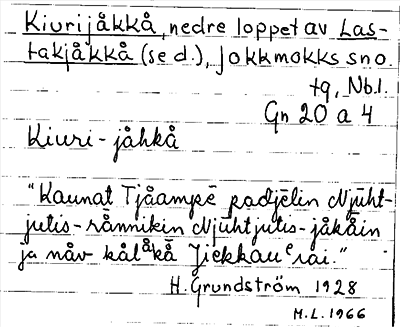 Kiurijåkkå, nedre loppet av Las-
takjåkkå (se d.), Jokkmokks sno.
tq, Nb.l.
Gn 20 a 4
Kiuri-jåhkå
"Kaunat Tjåampē padjēlin Njūht-
jutis-rånnikin Njūhtjutis-jåkåin
ja nåv kålåkå Jiekkau e rai."
H. Grundström 1928
M.L. 1966